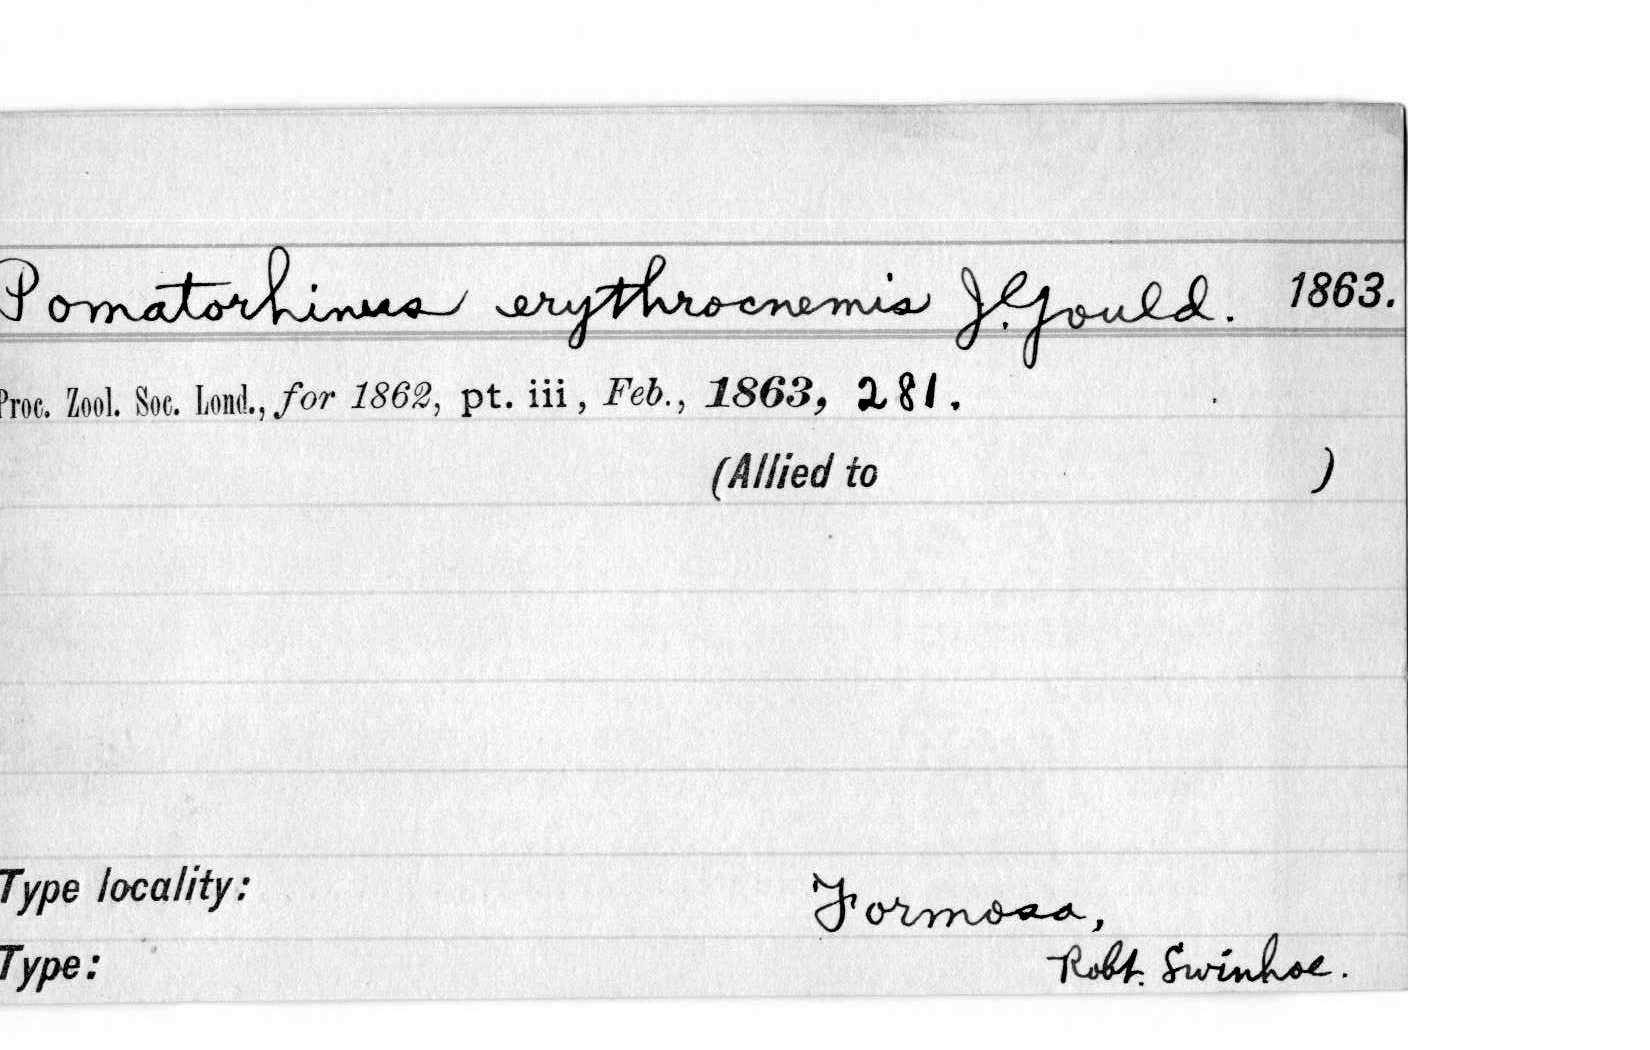 Pomatorhinus erythrocnemis J. Gould. 1863.
Proc. Zool. Soc. Lond., for 1862, pt. iii, Feb., 1863, 281.
(Allied to )
Type locality: Formosa,
Type: Robt. Swinhoe.